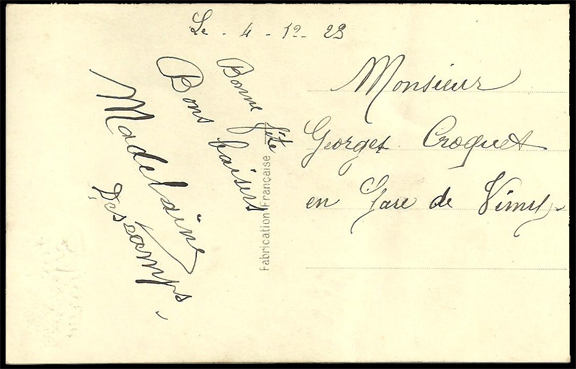 Le - 4 - 12 - 23
Bonne fête
Bons baisers
Madelaine
Descamps.
Fabrication Française
Monsieur
Georges Croquet
en Gare de Vimy.